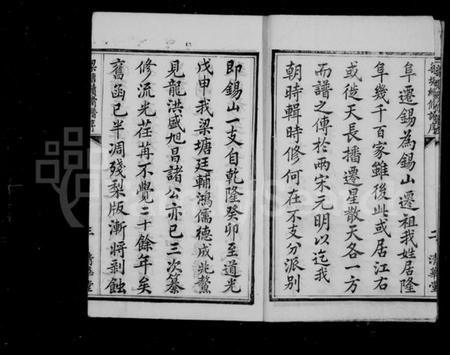 阜遷錫為錫山遷祖我姓居隆
阜幾千百家雖後此或居江右
或從天長播遷星散天各一方
而譜之傳於兩宋元明以迄我
朝時輯時修何在不支分派別
二
清華堂
即錫山一支自乾隆癸卯至道光
戊申我梁塘廷輔鴻儒德成兆鰲
見龍洪盛旭昌諸公亦已三次纂
修流光荏苒不覺二十餘年矣
舊函已半凋殘梨版漸將剝蝕
三